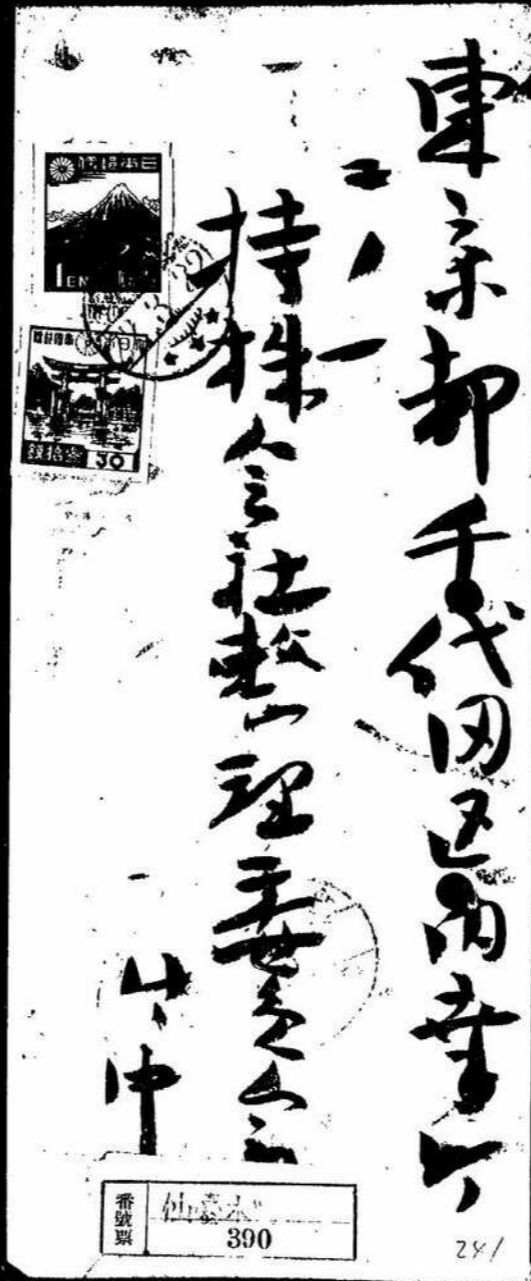 東京都千代田区内幸町
二ノ一
持株会社整理委員会
御中
大日本帝國郵便
1 EN
大日本帝國郵便
錢拾參 30
番號票
390
241